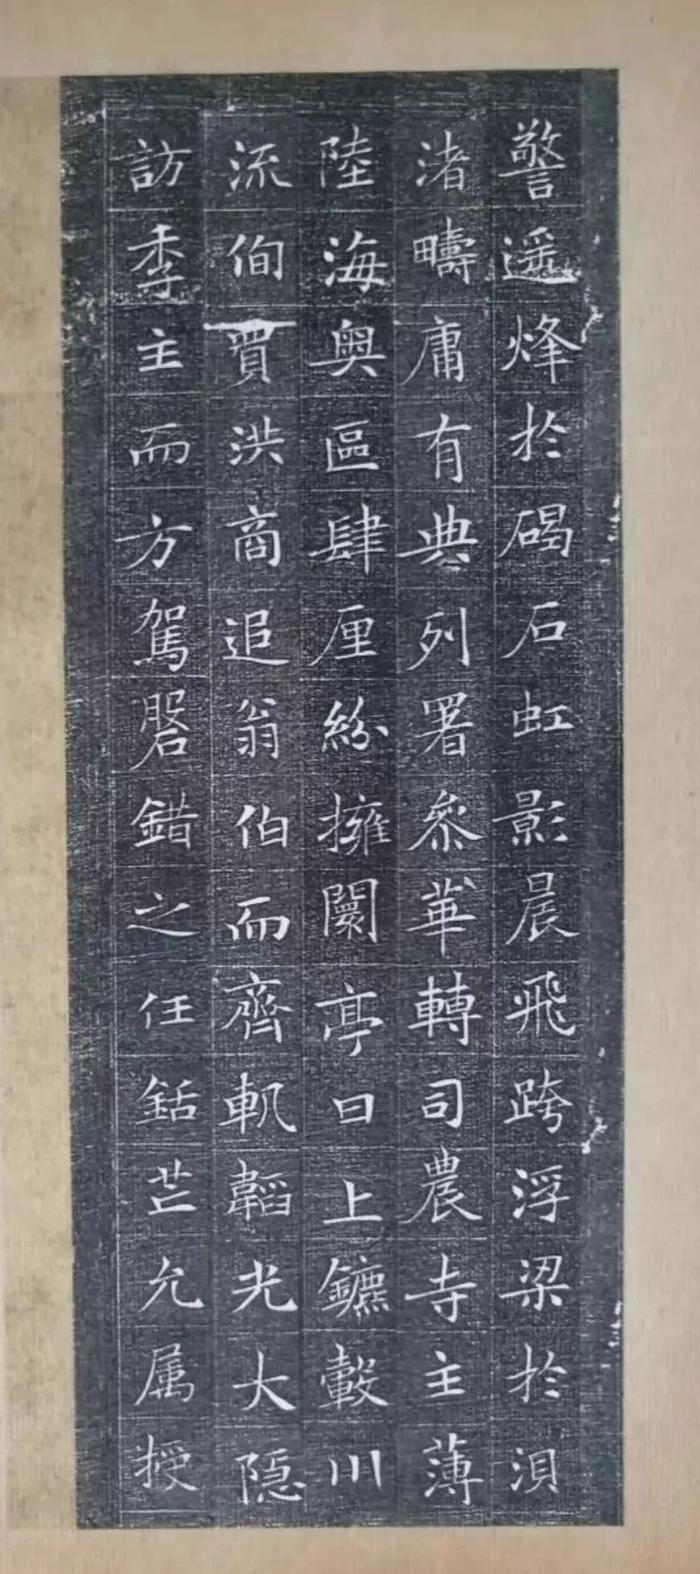 警遥烽於碣石虹影晨飛跨浮梁於浿
渚疇庸有典列署叅華轉司農寺主薄
陸海奥區肆厘紛擁闤亭日上鑣轂川
流侚賈洪商追翁伯而齊軌韜光大隐
訪季主而方駕磐錯之任銛芒允属授